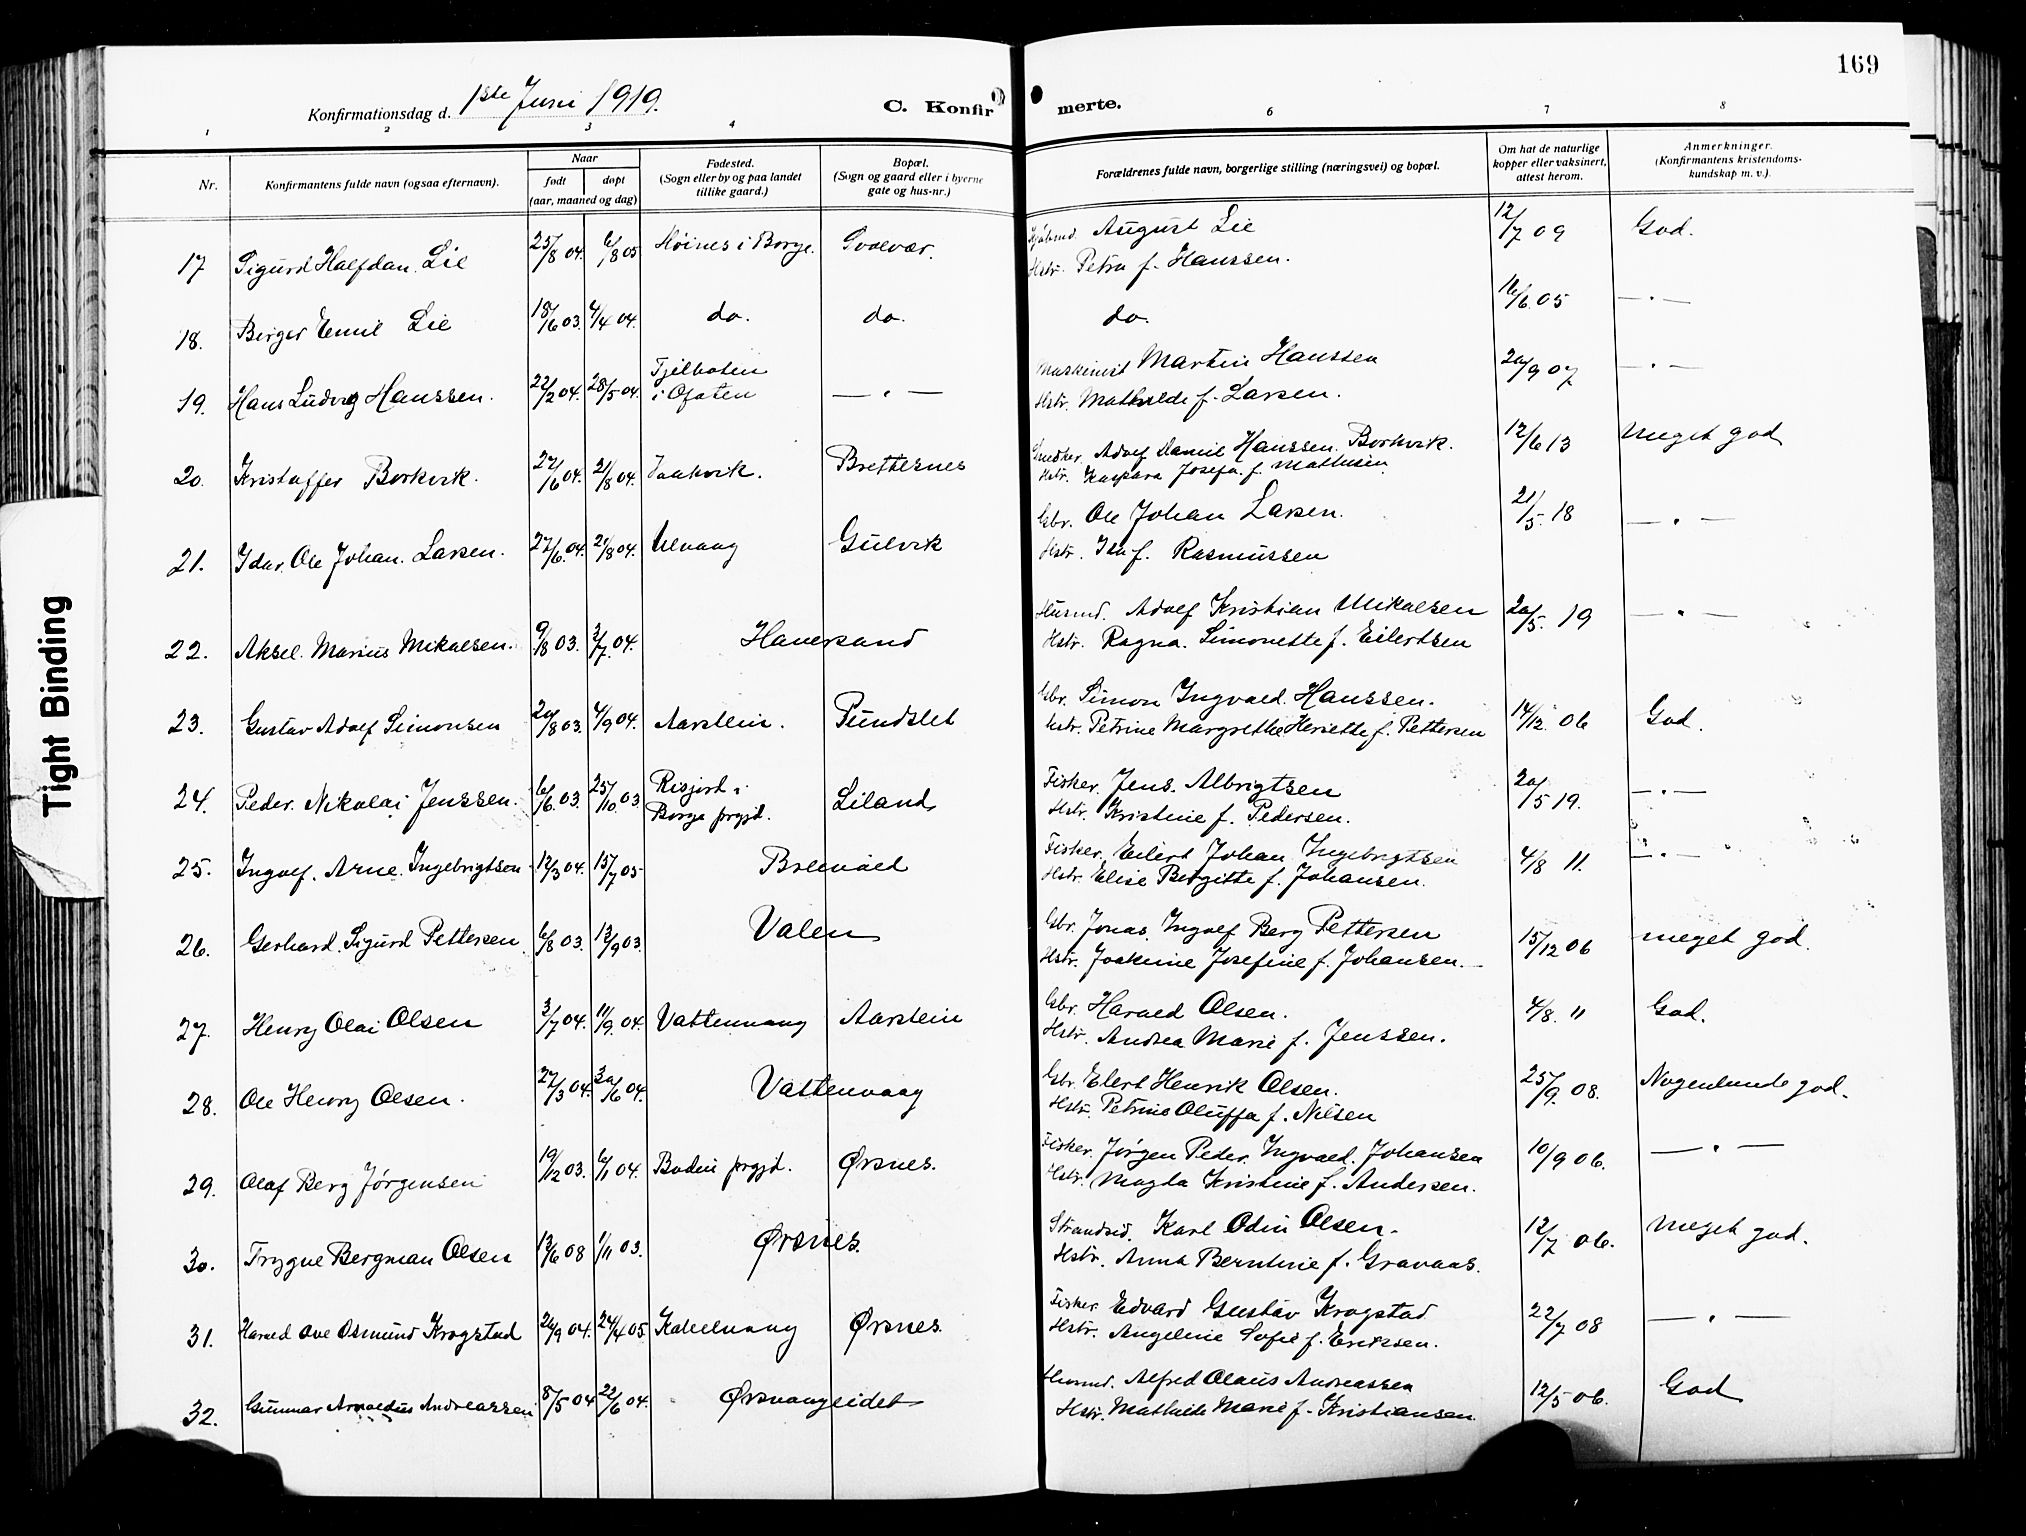 169
Konfirmationsdag d. 1ste Juni 1919. C. Konfir merte.
1 2 3 4 6 7 8
Nr.
Konfirmantens fulde navn (ogsaa efternavn).
Naar
født døpt
(aar, maaned og dag)
Fødested.
(Sogn eller by og paa landet
tillike gaard.)
Bopæl.
(Sogn og gaard eller i byerne
gate og hus-nr.)
Forældrenes fulde navn, borgerlige stilling (næringsvei) og bopæl.
Om hat de naturlige
kopper eller vaksinert,
attest herom.
Anmerkninger.
(Konfirmantens kristendoms-
kundskap m. v.).
17 Sigurd Halfdan Lie 25/8 04. 6/8 05 Høines i Borge. Svolvær. August Lie 12/7 09 God.
Hstr. Petra f. Hanssen.
18. Birger Emil Lie 18/6 03 4/4 04. do. do. do. 16/6 05 — " —
19. Hans Ludvig Hanssen. 22/2 04. 28/5 04. Tjelboten
i Ofoten — " — Maskinist Martin Hanssen 20/9 07 — " —
Hstr. Mathilde f. Larsen.
20. Kristoffer Borkvik. 27/6 04. 21/8 04. Vaakvik. Brettesnes Adolf Daniel Hanssen Borkvik. 12/6 13 Meget god
Hstr. Kaspara Josefa f. Mathisen
21. Idar Ole Johan Larsen. 27/6 04. 21/8 04. Ulvaag Gulvik Gbr. Ole Johan Larsen. 21/5 18 — " —
Hstr. Ida f. Rasmussen
22. Aksel Marius Mikalsen. 9/8 03. 3/7 04. Haversand Husmd. Adolf Kristian Mikalsen 20/5 19 — " —
Hstr. Ragna Simonette f. Eilertsen
23. Gustav Adolf Simonsen 20/8 03. 4/9 04. Aarstein. Pundslet Gbr. Simon Ingvald Hanssen. 14/12 06 God.
Hstr. Petrine Margrethe Heriette f. Pettersen
24. Peder Nikolai Jenssen. 6/6 03. 25/10 03. Risjord i
Borge prgjd. Liland Fisker Jens Albrigtsen 20/5 19. — " —
Hstr. Kristine f. Pedersen.
25. Ingolf Arne Ingebrigtsen 12/3 04. 15/7 05 Breivold Fisker Eilert Johan Ingebrigtsen 4/8 11. — " —
Hstr. Elise Bergitte f. Johansen.
26. Gerhard Sigurd Pettersen 6/8 03. 13/9 03. Valen Gbr. Jonas Ingolf Berg Pettersen 15/12 06 meget god.
Hstr. Joakime Josefine f. Johansen.
27. Henry Olai Olsen 3/7 04. 11/9 04. Vattenvaag Aarstein Gbr. Harald Olsen. 4/8 11 God.
Hstr. Andrea Marie f. Jenssen.
28. Ole Henry Olsen. 27/3 04. 30/6 04. Vattenvaag Gbr. Elert Henrik Olsen. 25/9 08. Nogenlunde god.
Hstr. Petrine Oluffa f. Nilsen
29. Olaf Berg Jørgensen 19/12 03. 6/1 04. Bodin prgjd. Ørsnes. Fisker Jørgen Peder Ingvald Johansen 10/9 06. — " —
Hstr. Magda Kristine f. Andersen.
30. Trygve Bergman Olsen 13/6 08 1/11 03. Ørsnes. Strandsid. Karl Odin Olsen. 12/7 06. Meget god.
Hstr. Anna Berntine f. Gravaas.
31. Harald Ove Osmund Krogstad 26/9 04. 24/4 05. Kabelvaag Ørsnes. Fisker Edvard Gustav Krogstad 22/7 08 — " —
Hstr. Angeline Sofie f. Eriksen.
32. Gunnar Arnoldus Andreassen 8/5 04 22/6 04. Ørsvaageidet Husmd. Alfred Olaus Andreassen 12/5 06. God
Hstr. Mathilde Marie f. Kristiansen.
Tight Binding